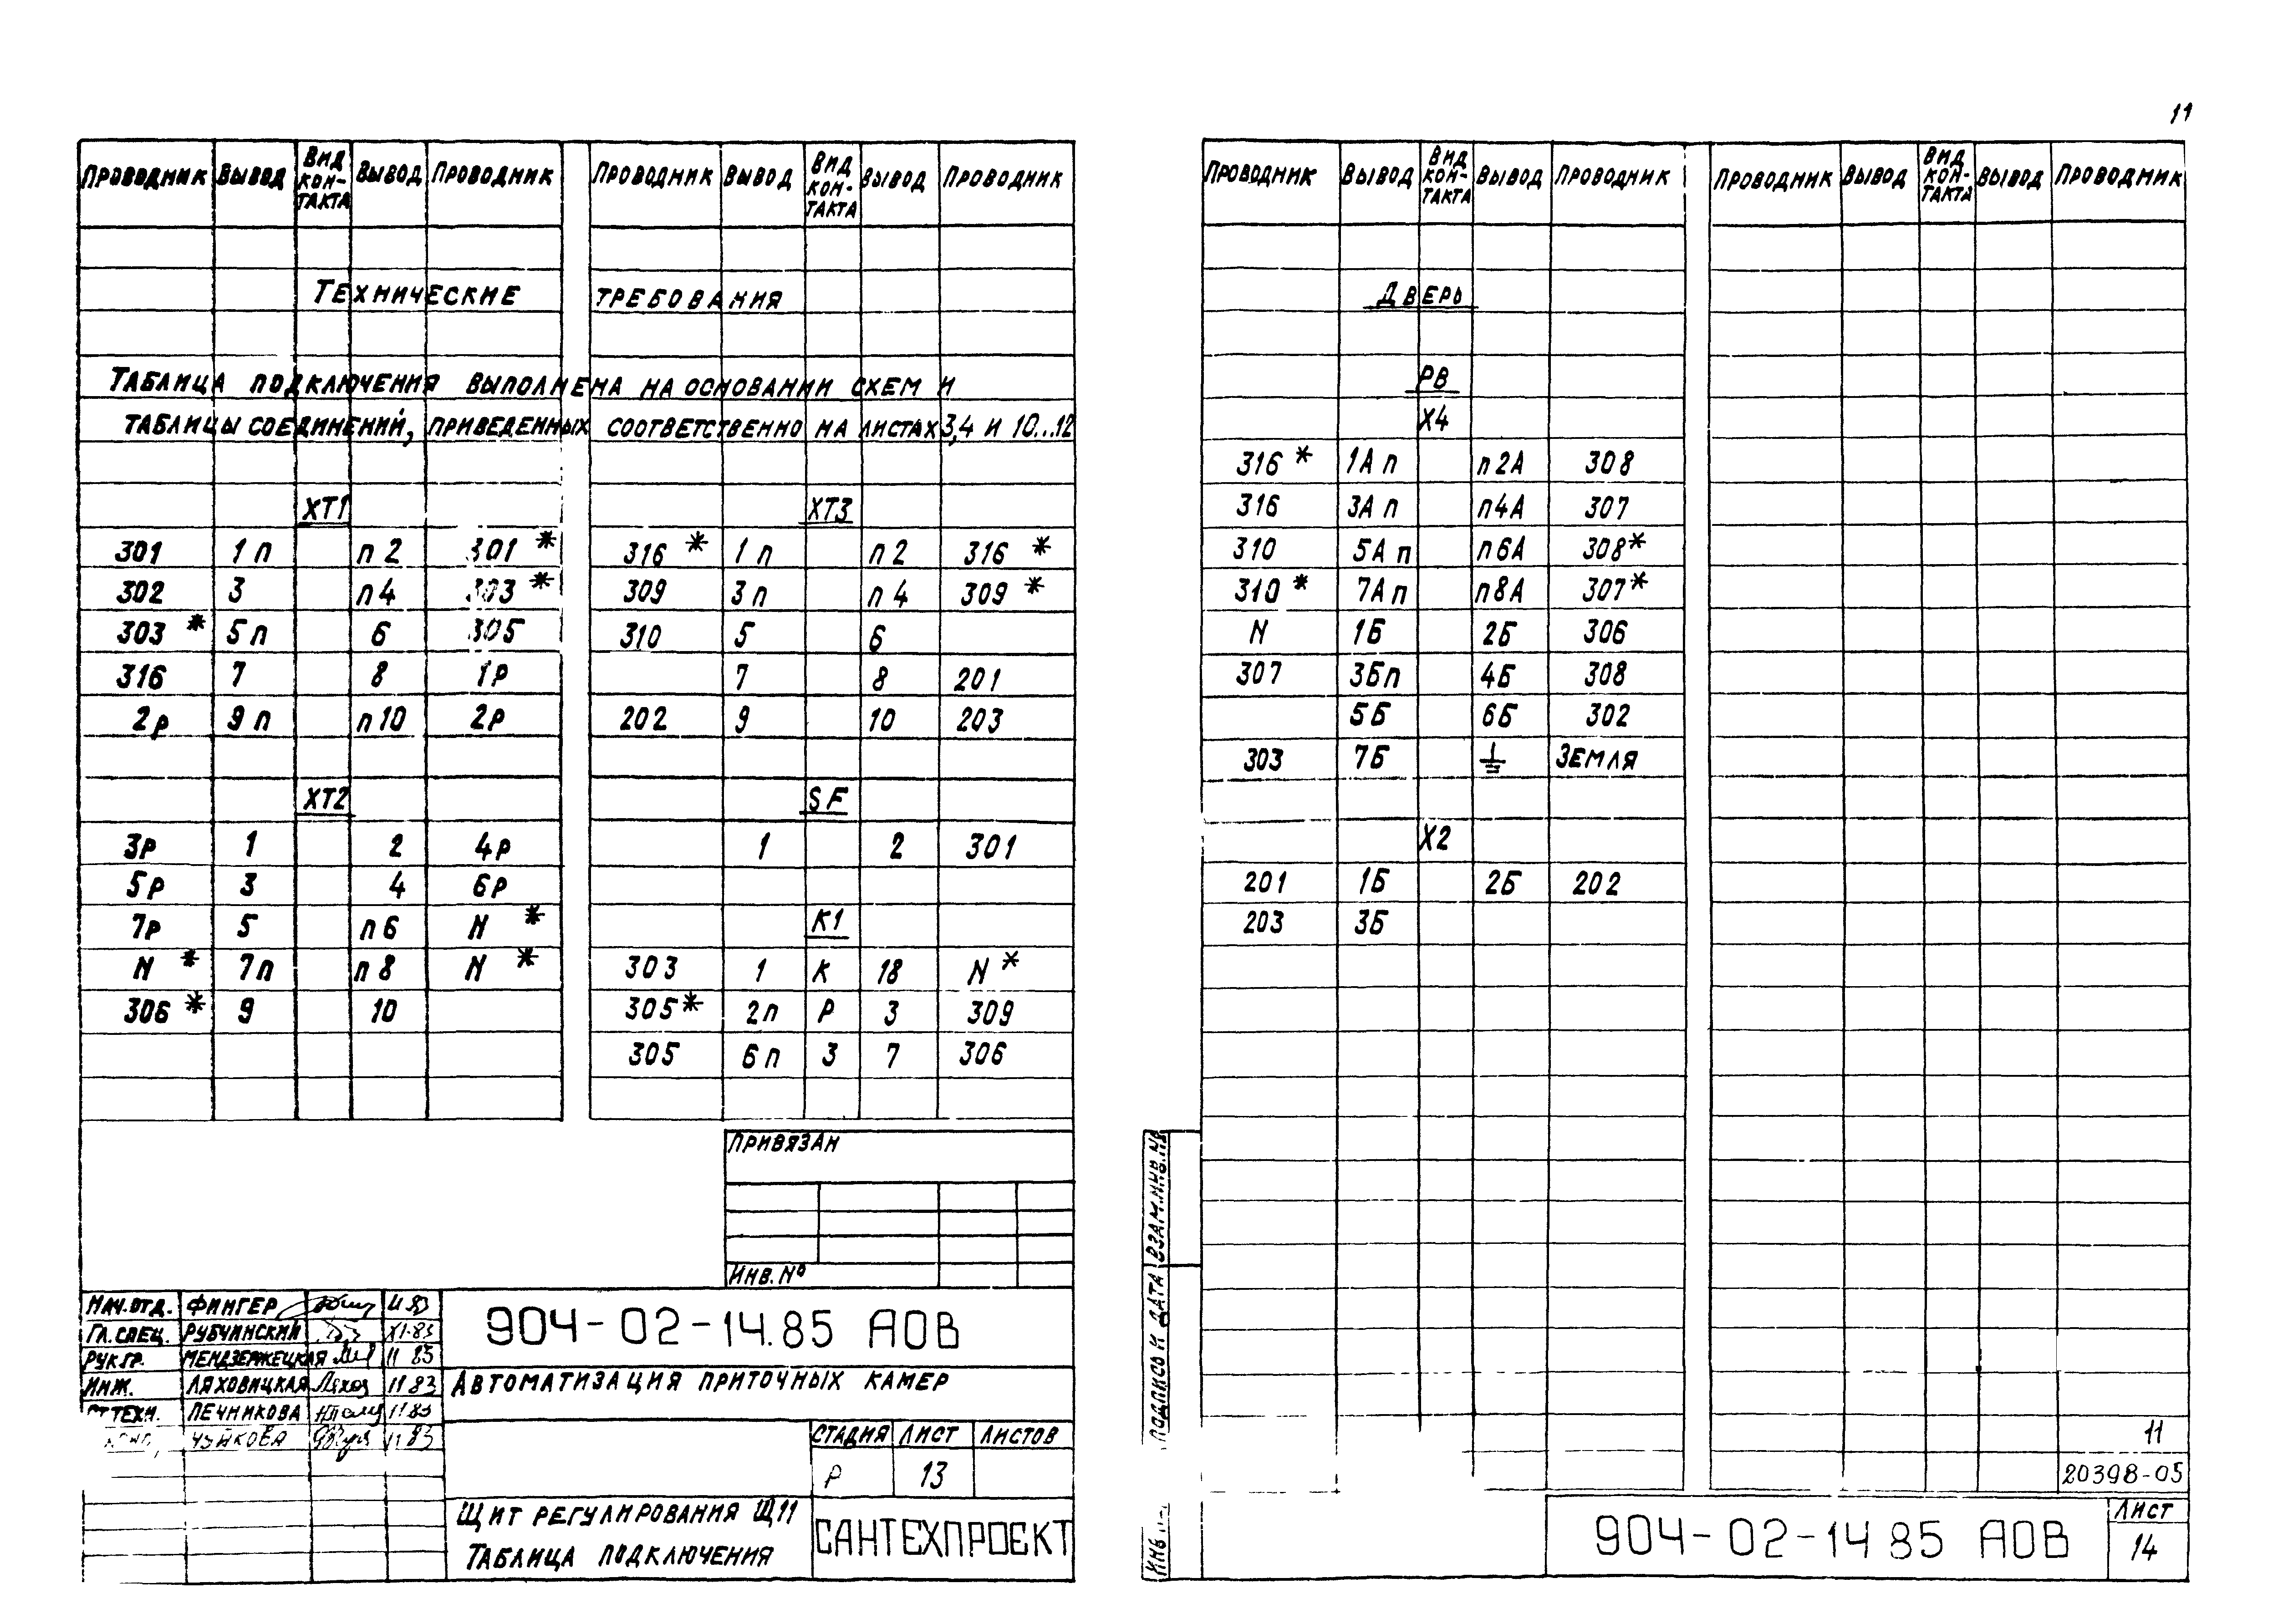 11
ПРОВОДНИК ВЫВОД ВИД КОН-ТАКТА ВЫВОД ПРОВОДНИК ПРОВОДНИК ВЫВОД ВИД КОН-ТАКТА ВЫВОД ПРОВОДНИК
ТЕХНИЧЕСКИЕ ТРЕБОВАНИЯ
ТАБЛИЦА ПОДКЛЮЧЕНИЯ ВЫПОЛНЕНА НА ОСНОВАНИИ СХЕМ И
ТАБЛИЦЫ СОЕДИНЕНИЙ, ПРИВЕДЕННЫХ СООТВЕТСТВЕННО НА ЛИСТАХ 3,4 И 10...12
ХТ1
301 1п п2 301*
302 3 п4 303*
303* 5п 6 305
316 7 8 1Р
2Р 9п п10 2Р
ХТ2
3Р 1 2 4Р
5Р 3 4 6Р
7Р 5 п6 N*
N* 7п п8 N*
306* 9 10
ХТ3
316* 1п п2 316*
309 3п п4 309*
310 5 6
7 8 201
202 9 10 203
SF
1 2 301
К1
303 1 К 18 N*
305* 2п Р 3 309
305 6п З 7 306
ПРИВЯЗАН
ИНВ. №
НАЧ.ОТД. ФИНГЕР 11 83
ГЛ.СПЕЦ. РУБЧИНСКИЙ XI-83
РУК.ГР. МЕНДЗЕРЖЕЦКАЯ 11 83
ИНЖ. ЛЯХОВИЦКАЯ 11 83
СТ.ТЕХН. ПЕЧНИКОВА 11 83
ЧУЙКОВА 11 83
904-02-14.85 АОВ
АВТОМАТИЗАЦИЯ ПРИТОЧНЫХ КАМЕР
СТАДИЯ ЛИСТ ЛИСТОВ
Р 13
ЩИТ РЕГУЛИРОВАНИЯ Щ11
ТАБЛИЦА ПОДКЛЮЧЕНИЯ
САНТЕХПРОЕКТ
ПРОВОДНИК ВЫВОД ВИД КОН-ТАКТА ВЫВОД ПРОВОДНИК ПРОВОДНИК ВЫВОД ВИД КОН-ТАКТА ВЫВОД ПРОВОДНИК
ДВЕРЬ
РВ
Х4
316* 1А п п2А 308
316 3А п п4А 307
310 5А п п6А 308*
310* 7А п п8А 307*
N 1Б 2Б 306
307 3Бп 4Б 308
5Б 6Б 302
303 7Б ⏚ ЗЕМЛЯ
Х2
201 1Б 2Б 202
203 3Б
ПОДПИСЬ И ДАТА ВЗАМ.ИНВ.№
11
20398-05
904-02-14 85 АОВ
ЛИСТ
14